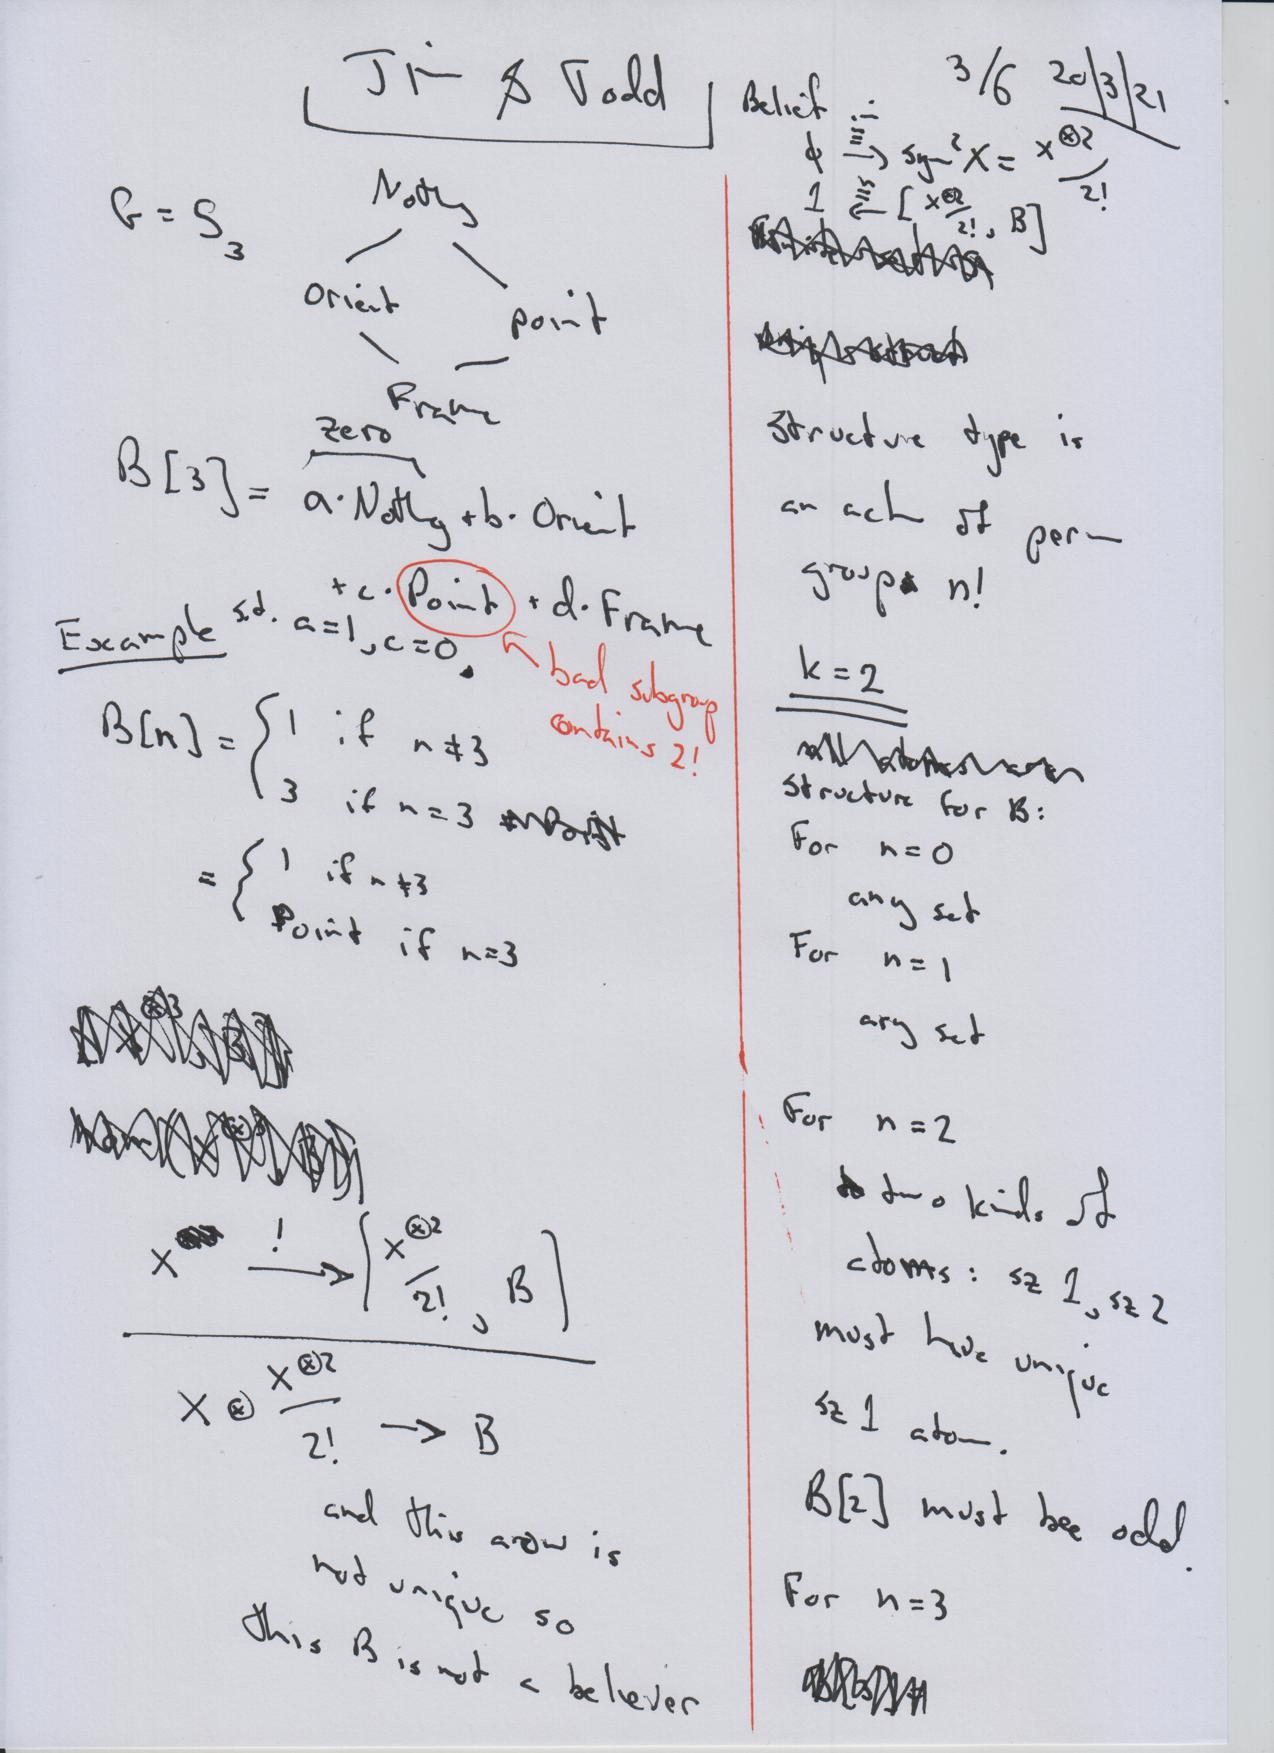 Jim & Todd
3/6 20/3/21
G = S₃
Nothg
Orient
point
Frame
zero
B[3] = a·Nothg + b·Orient
+ c·Point + d·Frame
Example s.t. a=1, c=0.
bad subgroup
contains 2!
B[n] = { 1 if n≠3
3 if n=3
= { 1 if n≠3
Point if n=3
X —!→ [X^⊗2/2!, B]
X ⊗ X^⊗2/2! → B
and this arrow is
not unique so
this B is not a believer
Belief :-
ϕ ≡→ sym²X = X^⊗2/2!
1 ≡← [X^⊗2/2!, B]
Structure type is
an actn of perm
group n!
k=2
structure for B:
For n=0
any set
For n=1
any set
For n=2
two kinds of
atoms: sz 1, sz 2
must have unique
sz 1 atom.
B[2] must be odd.
For n=3